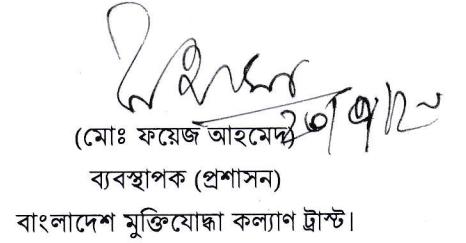 (মোঃ ফয়েজ আহমেদ)
ব্যবস্থাপক (প্রশাসন)
বাংলাদেশ মুক্তিযোদ্ধা কল্যাণ ট্রাস্ট।